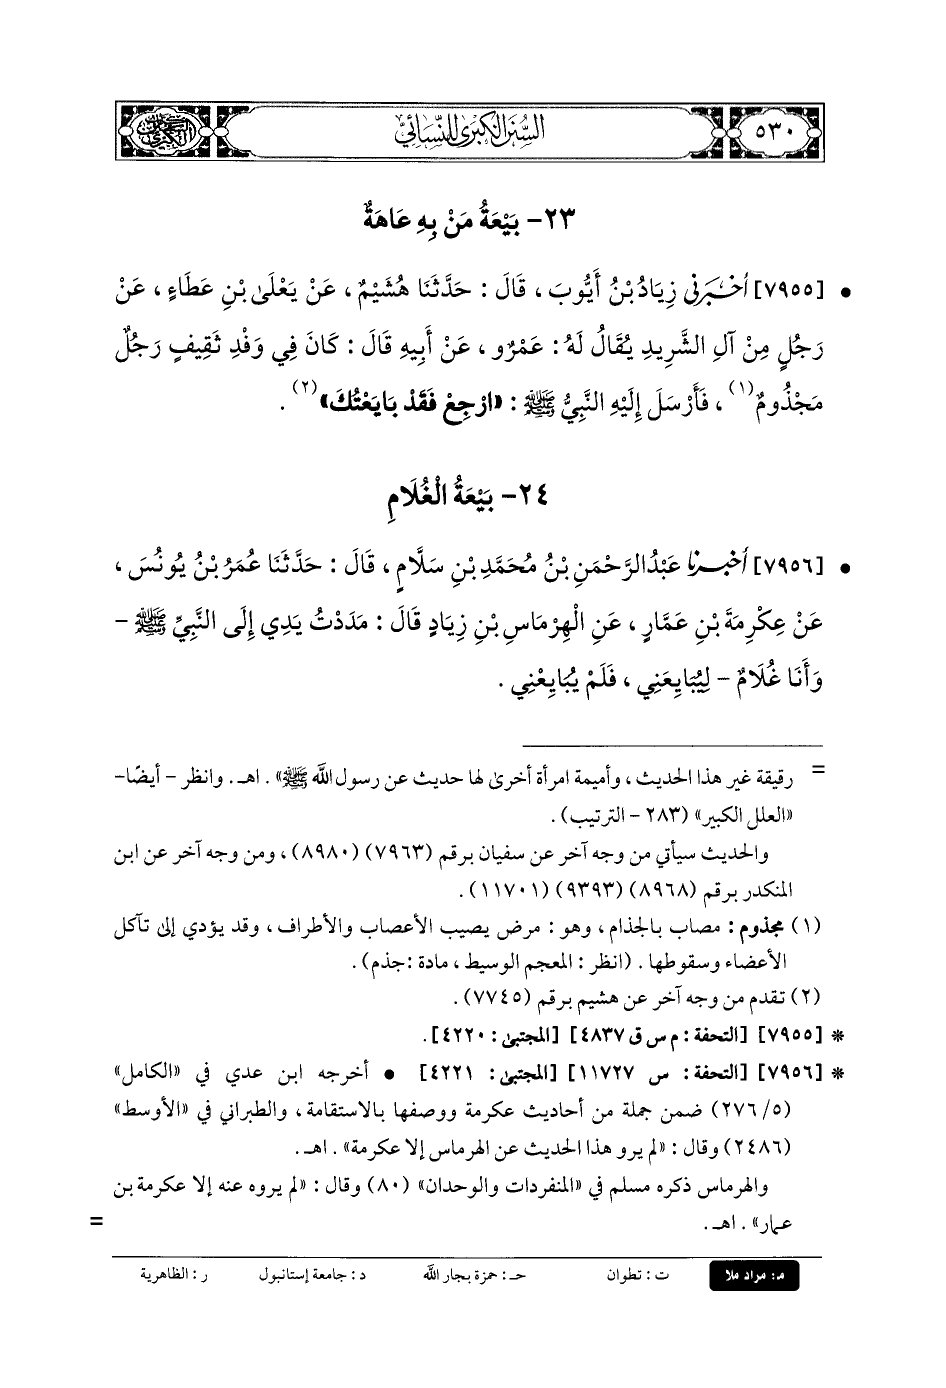 ٥٣٠
السنن الكبرى للنسائي
٢٣- بَيْعَةُ مَنْ بِهِ عَاهَةٌ
• [٧٩٥٥] أَخْبَرَنِي زِيَادُ بْنُ أَيُّوبَ ، قَالَ : حَدَّثَنَا هُشَيْمٌ ، عَنْ يَعْلَى بْنِ عَطَاءٍ ، عَنْ
رَجُلٍ مِنْ آلِ الشَّرِيدِ يُقَالُ لَهُ : عَمْرٌو ، عَنْ أَبِيهِ قَالَ : كَانَ فِي وَفْدِ ثَقِيفٍ رَجُلٌ
مَجْذُومٌ(١) ، فَأَرْسَلَ إِلَيْهِ النَّبِيُّ ﷺ : «ارْجِعْ فَقَدْ بَايَعْتُكَ»(٢) .
٢٤- بَيْعَةُ الْغُلَامِ
• [٧٩٥٦] أَخْبَرَنَا عَبْدُالرَّحْمَنِ بْنُ مُحَمَّدِ بْنِ سَلَّامٍ ، قَالَ : حَدَّثَنَا عُمَرُ بْنُ يُونُسَ ،
عَنْ عِكْرِمَةَ بْنِ عَمَّارٍ ، عَنِ الْهِرْمَاسِ بْنِ زِيَادٍ قَالَ : مَدَدْتُ يَدِي إِلَى النَّبِيِّ ﷺ -
وَأَنَا غُلَامٌ - لِيُبَايِعَنِي ، فَلَمْ يُبَايِعْنِي .
= رقيقة غير هذا الحديث ، وأميمة امرأة أخرى لها حديث عن رسول الله ﷺ» . اهـ. وانظر - أيضًا-
«العلل الكبير» (٢٨٣ - الترتيب) .
والحديث سيأتي من وجه آخر عن سفيان برقم (٧٩٦٣) (٨٩٨٠) ، ومن وجه آخر عن ابن
المنكدر برقم (٨٩٦٨) (٩٣٩٣) (١١٧٠١) .
(١) مجذوم : مصاب بالجذام ، وهو : مرض يصيب الأعصاب والأطراف ، وقد يؤدي إلى تآكل
الأعضاء وسقوطها . (انظر : المعجم الوسيط ، مادة :جذم) .
(٢) تقدم من وجه آخر عن هشيم برقم (٧٧٤٥) .
* [٧٩٥٥] [التحفة : م س ق ٤٨٣٧] [المجتبى : ٤٢٢٠] .
* [٧٩٥٦] [التحفة : س ١١٧٢٧] [المجتبى : ٤٢٢١] • أخرجه ابن عدي في «الكامل»
(٢٧٦/٥) ضمن جملة من أحاديث عكرمة ووصفها بالاستقامة ، والطبراني في «الأوسط»
(٢٤٨٦) وقال : «لم يرو هذا الحديث عن الهرماس إلا عكرمة» . اهـ.
والهرماس ذكره مسلم في «المنفردات والوحدان» (٨٠) وقال : «لم يروه عنه إلا عكرمة بن
عمار» . اهـ . =
م: مراد ملا ت : تطوان حـ : حمزة بجار الله د : جامعة إستانبول ر : الظاهرية